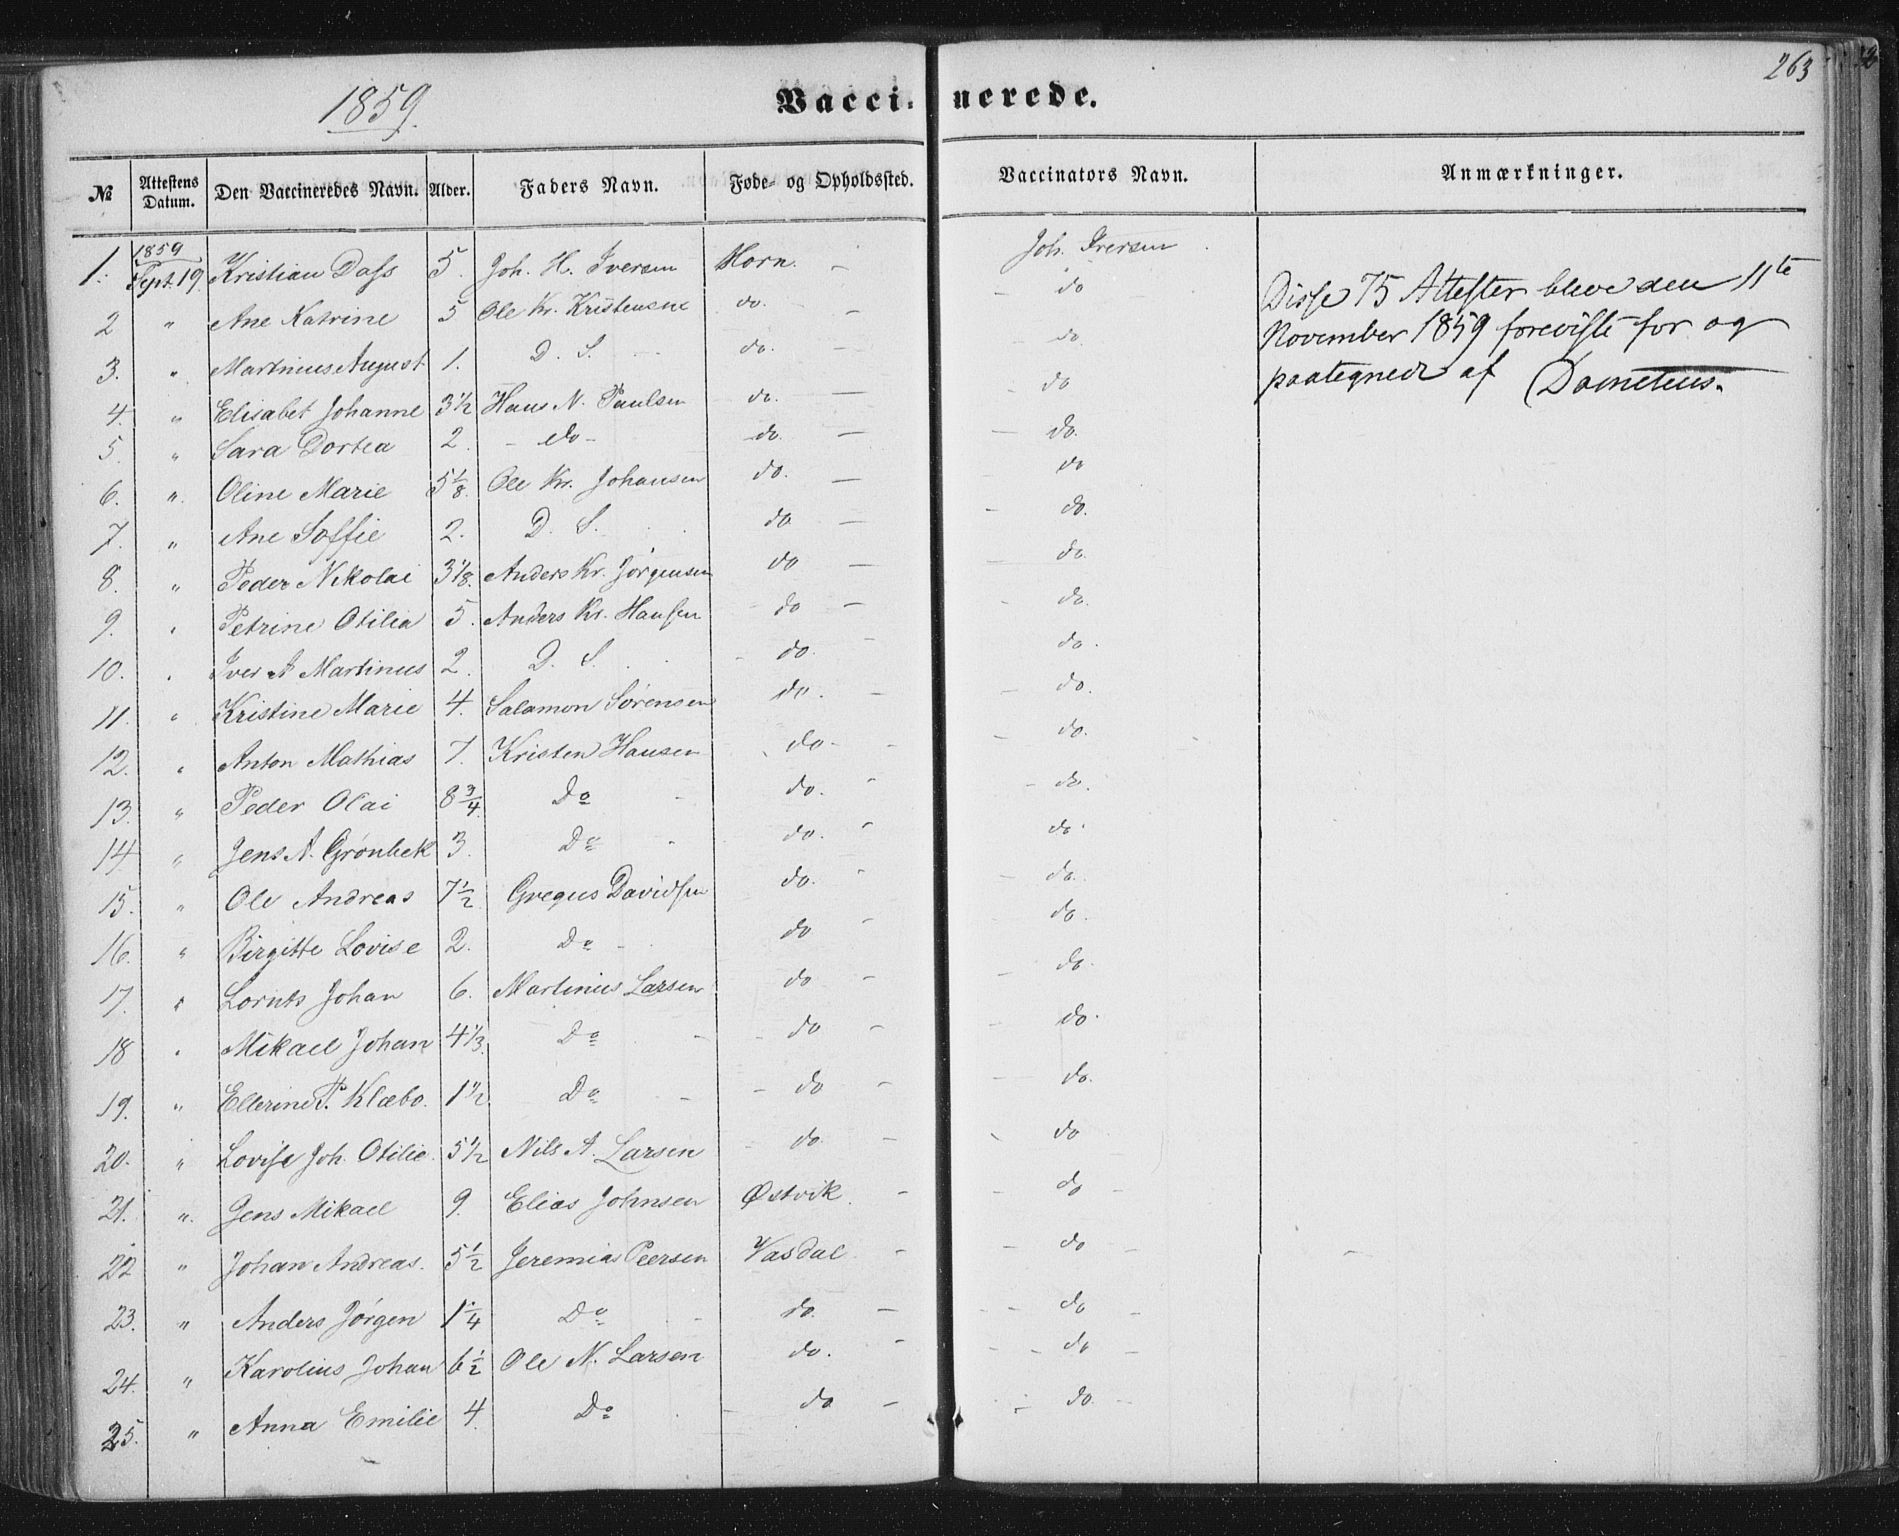 263
1859.
Vaccinerede.
№ Attestens Datum. Den Vaccineredes Navn. Alder. Faders Navn. Føde- og Opholdssted. Vaccinators Navn. Anmærkninger.
1. 1859 Sept. 19. Kristian Dass 5. Joh. H. Iversen Horn. - Joh. Iversen
2 " Ane Katrine 5 Ole Kr. Kristensen do. - do
3. " Martinus August 1. D. S. do. do.
4. " Elisabet Johanne 3½ Hans N. Paulsen do. - do
5. " Sara Dortea 2. - do - do. - do.
6. " Oline Marie 5⅛. Ole Kr. Johansen do. - do
7. " Ane Soffie 2. D. S. do - do.
8. " Peder Nikolai 3⅛. Anders Kr. Jørgensen do - do.
9. " Petrine Otilia 5. Anders Kr. Hansen do - do.
10. " Iver A Martinus 2. D. S. do. do.
11. " Kristine Marie 4. Salamon Sørensen do. - do.
12. " Anton Mathias 7. Kristen Hansen do. - do.
13. " Peder Olai 8¾. Do do. - do.
14 " Jens A. Grønbek 3. Do do. - do.
15. " Ole Andreas 7½ Gregus Davidsen do. - do.
16. " Birgitte Lovise 2. Do do - do.
17. " Lornts Johan 6. Martinus Larsen do - do.
18 " Mikael Johan 4⅓. Do do - do.
19. " Ellerine P. Klæbo. 1½ Do do - do.
20. " Lovise Joh. Otilie. 5½ Nils A. Larsen do - do
21. " Jens Mikael 9. Elias Johnsen Østvik. - do -
22 " Johan Andreas. 5½ Jeremias Peersen Vasdal - do -
23. " Anders Jørgen 1¼ Do do. - do -
24. " Karolius Johan 6½ Ole N. Larsen do. - do -
25. " Anna Emilie 4. Do do - do. -
Disse 75 Attester bleve den 11te
November 1859 foreviste for og
paategnede af